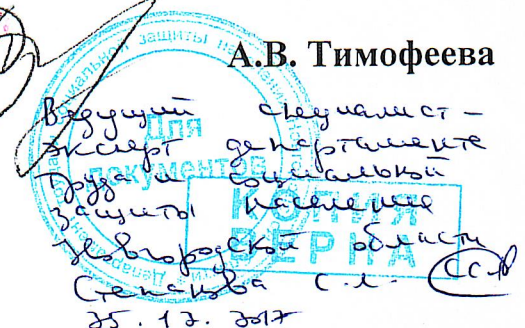 А.В. Тимофеева
Ведущий специалист-
эксперт департамента
труда и социальной
защиты населения
Новгородской области
Степанова С.Л.
25.12.2017
Для
документов
КОПИЯ
ВЕРНА